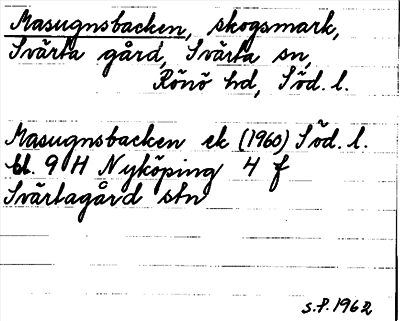 Masugnsbacken, skogsmark,
Svärta gård, Svärta sn,
Rönö hd, Söd. l.
Masugnsbacken ek (1960) Söd. l.
bl. 9 H Nyköping 4 f
Svärtagård stn
S.P. 1962